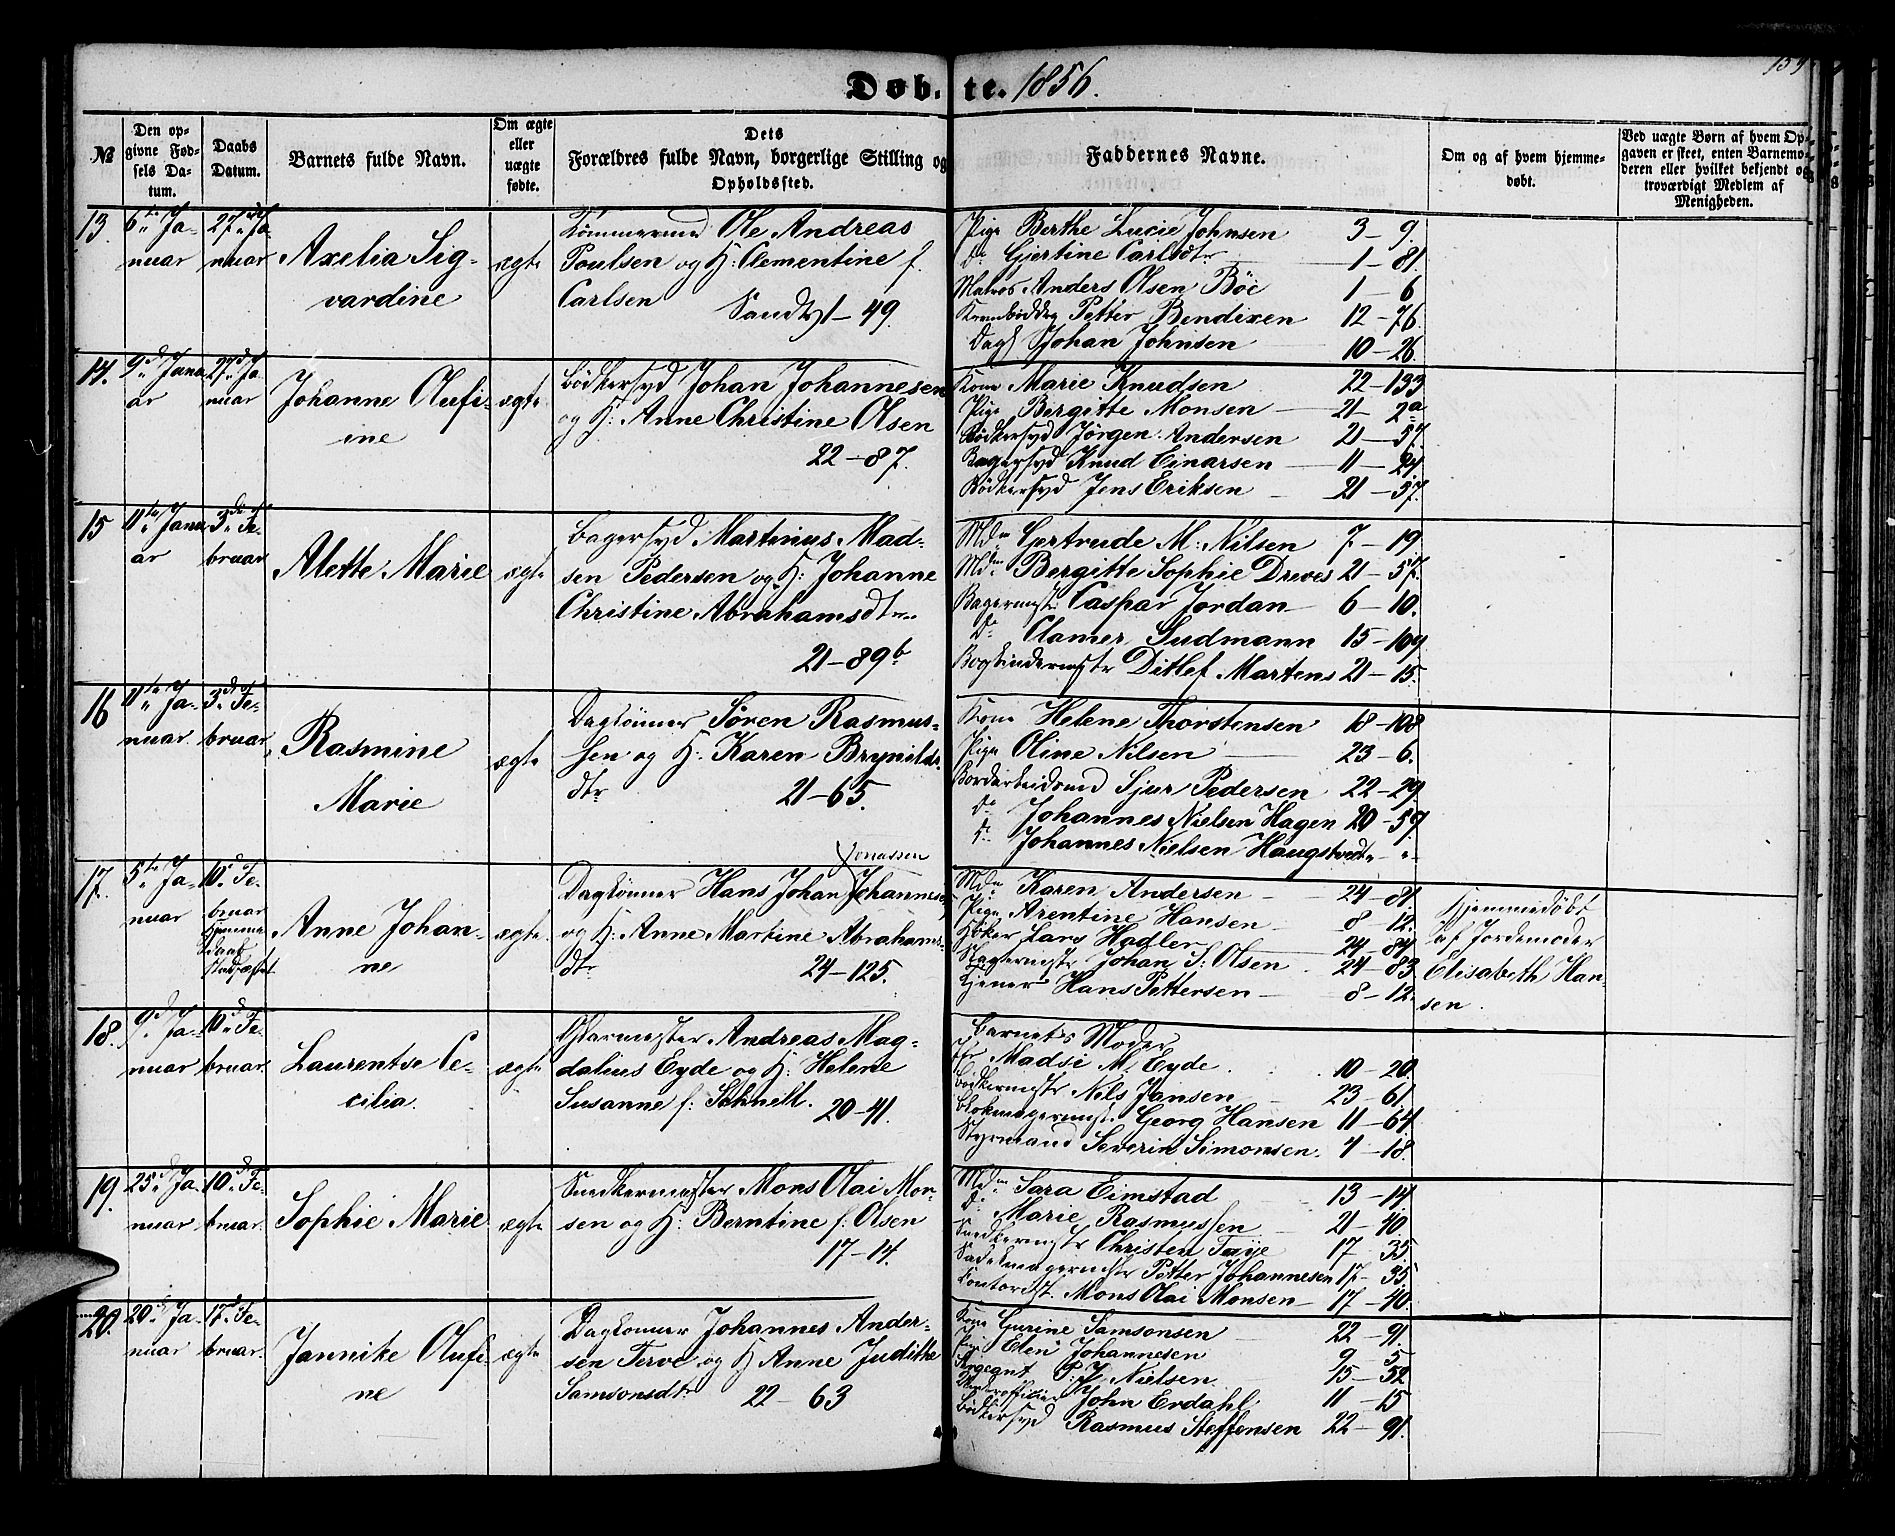 Døb. te. 1856.
№
Den op-
givne Fød-
sels Da-
tum.
Daabs
Datum.
Barnets fulde Navn.
Om ægte
eller
uægte
fødte.
Dets
Forældres fulde Navn, borgerlige Stilling og
Opholdssted.
Faddernes Navne.
Om og af hvem hjemme-
døbt.
Ved uægte Børn af hvem Op-
gaven er skeet, enten Barnemo-
deren eller hvilket bekjendt og
troværdigt Medlem af
Menigheden.
13. 6te Ja-
nuar
27de Ja-
nuar
Axelia Sig-
vardine
ægte
Tømmermd Ole Andreas
Poulsen og H: Clementine f.
Carlsen
Sandv 1-49.
Pige Berthe Lucie Johnsen 3-9.
do Gjertine Carlsdtr 1-81.
Matros Anders Olsen Böe 1-6
Petter Bendixen 12-76.
Dagl Johan Johnsen 10-26.
14. 9de Janu
ar
27de Ja
nuar
Johanne Olufi-
ine
ægte
Bødkersvd Johan Johannesen
og H: Anne Christine Olsen
22-87.
Kone Marie Knudsen 22-133
Pige Bergitte Monsen 21-2a
Bödkersvd Jörgen Andersen 21-57.
Bagersvd Knud Einarsen 11-24.
Bödkersvd Jens Eriksen 21-57.
15 11te Janu
ar
3de Fe-
bruar
Alette Marie
ægte
Bagersvd Martinus Mad-
sen Pedersen og H: Johanne
Christine Abrahamsdtr
21-89b
Mdm Gertrude M: Nilsen 7-19
Mdm Bergitte Sophie Dreves 21-57.
Bagermstr Caspar Jordan 6-10.
do Clamer Sudmann 15-109
Bogbindermstr Ditlef Martens 21-15.
16 11te Ja-
nuar.
3de Fe-
bruar
Rasmine
Marie
ægte
Daglönner Sören Rasmus-
sen og H. Karen Brynilds-
dtr 21-65.
Kone Helene Thorstensen 18-108
Pige Oline Nilsen 23-6.
Bordarbeidsmd Sjur Pedersen 22-29
do Johannes Nielsen Hagen 20-57.
do Johannes Nielsen Haugstvedt " - "
17. 5te Ja-
nuar
10de Fe-
bruar
Hjemme
daab
stadfæstet
Anne Johan-
ne
ægte.
Jonassen
Daglönner Hans Johan Johannesen
og H: Anne Martine Abrahams-
dtr 24-125.
Mdm Karen Andersen 24-81.
Pige Arentine Hansen 8-12.
Höker Lars Hadler 24-84.
Slagtermstr Johan S: Olsen 24-83.
Tjener Hans Pettersen 8-12.
Hjemmedöbt
af Jordemoder
Elisabeth Han-
sen.
18. 9de Ja-
nuar
10de Fe-
bruar
Laurentse Ce-
cilia.
ægte
Glarmester Andreas Mag-
dalius Eyde og H: Helene
Susanne f: Schnell. 20-41.
Barnets Moder
Jfr Madsi M. Eyde 10-20.
Bödkermstr Nils Jansen 23-61
Blokmagermstr Georg Hansen 11-64
Styrmand Severin Simonsen. 4-18.
19. 25de Ja-
nuar
10de Fe-
bruar.
Sophie Marie
ægte
Snedkermester Mons Olai Mon-
sen og H: Berntine f: Olsen
17-14.
Mdm Sara Eimstad 13-14.
do Marie Rasmussen 21-40.
Snedkermstr Christen Faije 17-35.
Sadelmagermstr Petter Johannesen 17-35
Kontorist. Mons Olai Monsen 17-40.
20. 20de Ja-
nuar
17de Fe-
bruar.
Jannike Olufi-
ne
ægte
Daglönner Johannes Ander-
sen Terve og H Anne Judithe
Samsonsdtr 22-63
Kone Gurine Samsonsen 22-91.
Pige Elen Johannesen 9-5
Sergeant P. J. Nielsen 15-52
Underofficier John Erdahl 11-15
Bödkersvd Rasmus Steffensen 22-91.